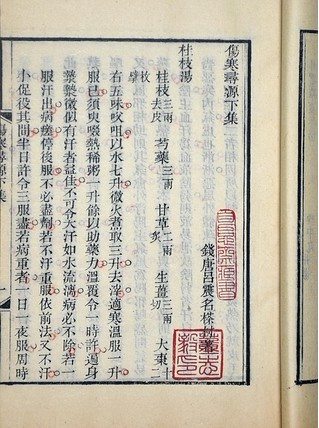 傷寒尋源下集
錢唐呂震名
桂枝湯
桂枝三兩去皮 芍藥三兩 甘草二兩炙 生薑三兩切 大棗十二
枚擘
右五味㕮咀以水七升微火煮取三升去滓適寒溫服一升
服已須臾啜熱稀粥一升餘以助藥力溫覆令一時許遍身
漐漐微似有汗者益佳不可令大汗如水流漓病必不除若一
服汗出病瘥停後服不必盡劑若不汗重服依前法又不汗
小促役其間半日許令三服盡若病重者一日一夜服周時
傷寒尋源下集